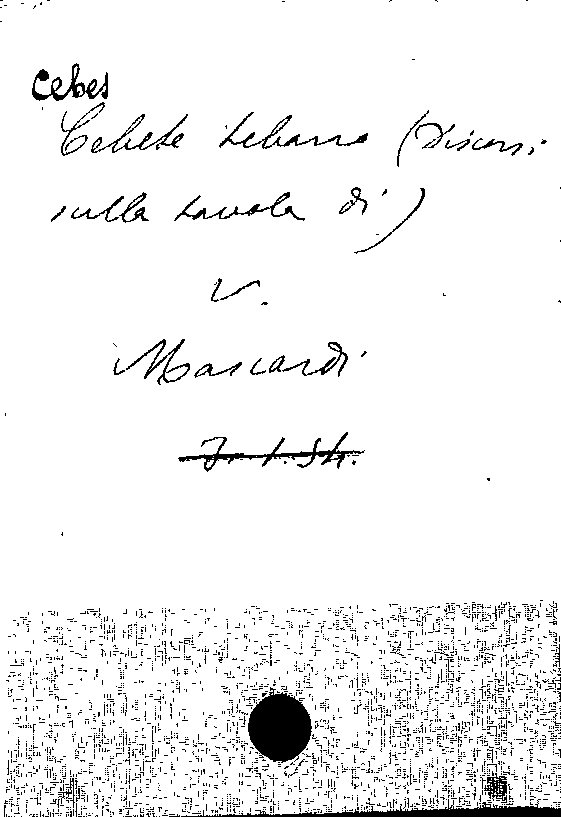 Cebes
Cebete tebano (Discorsi
sulla tavola di)
v.
Mascardi